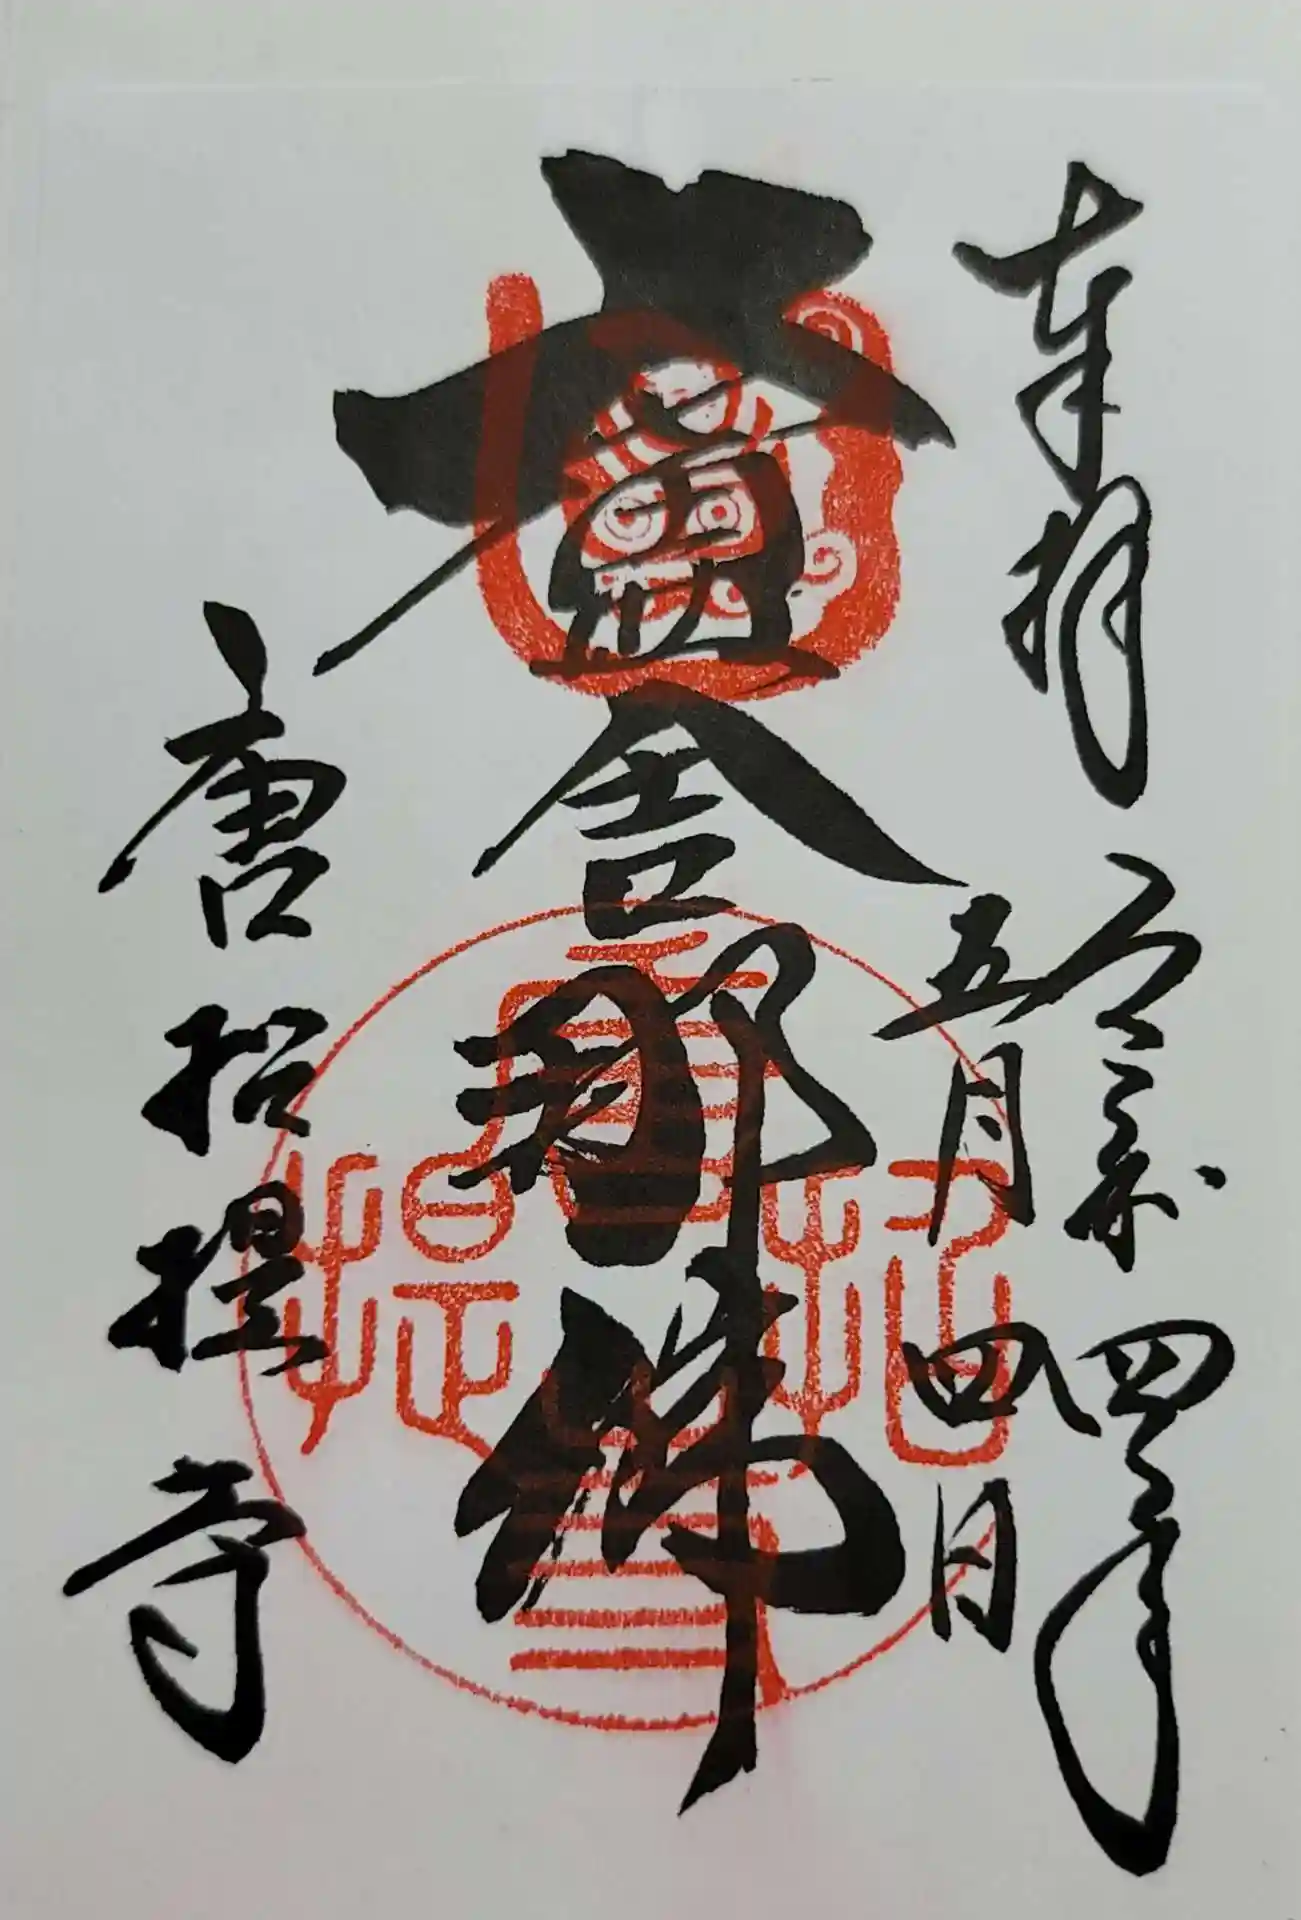 奉拝 令和四年
五月四日
盧舎那佛
唐招提寺